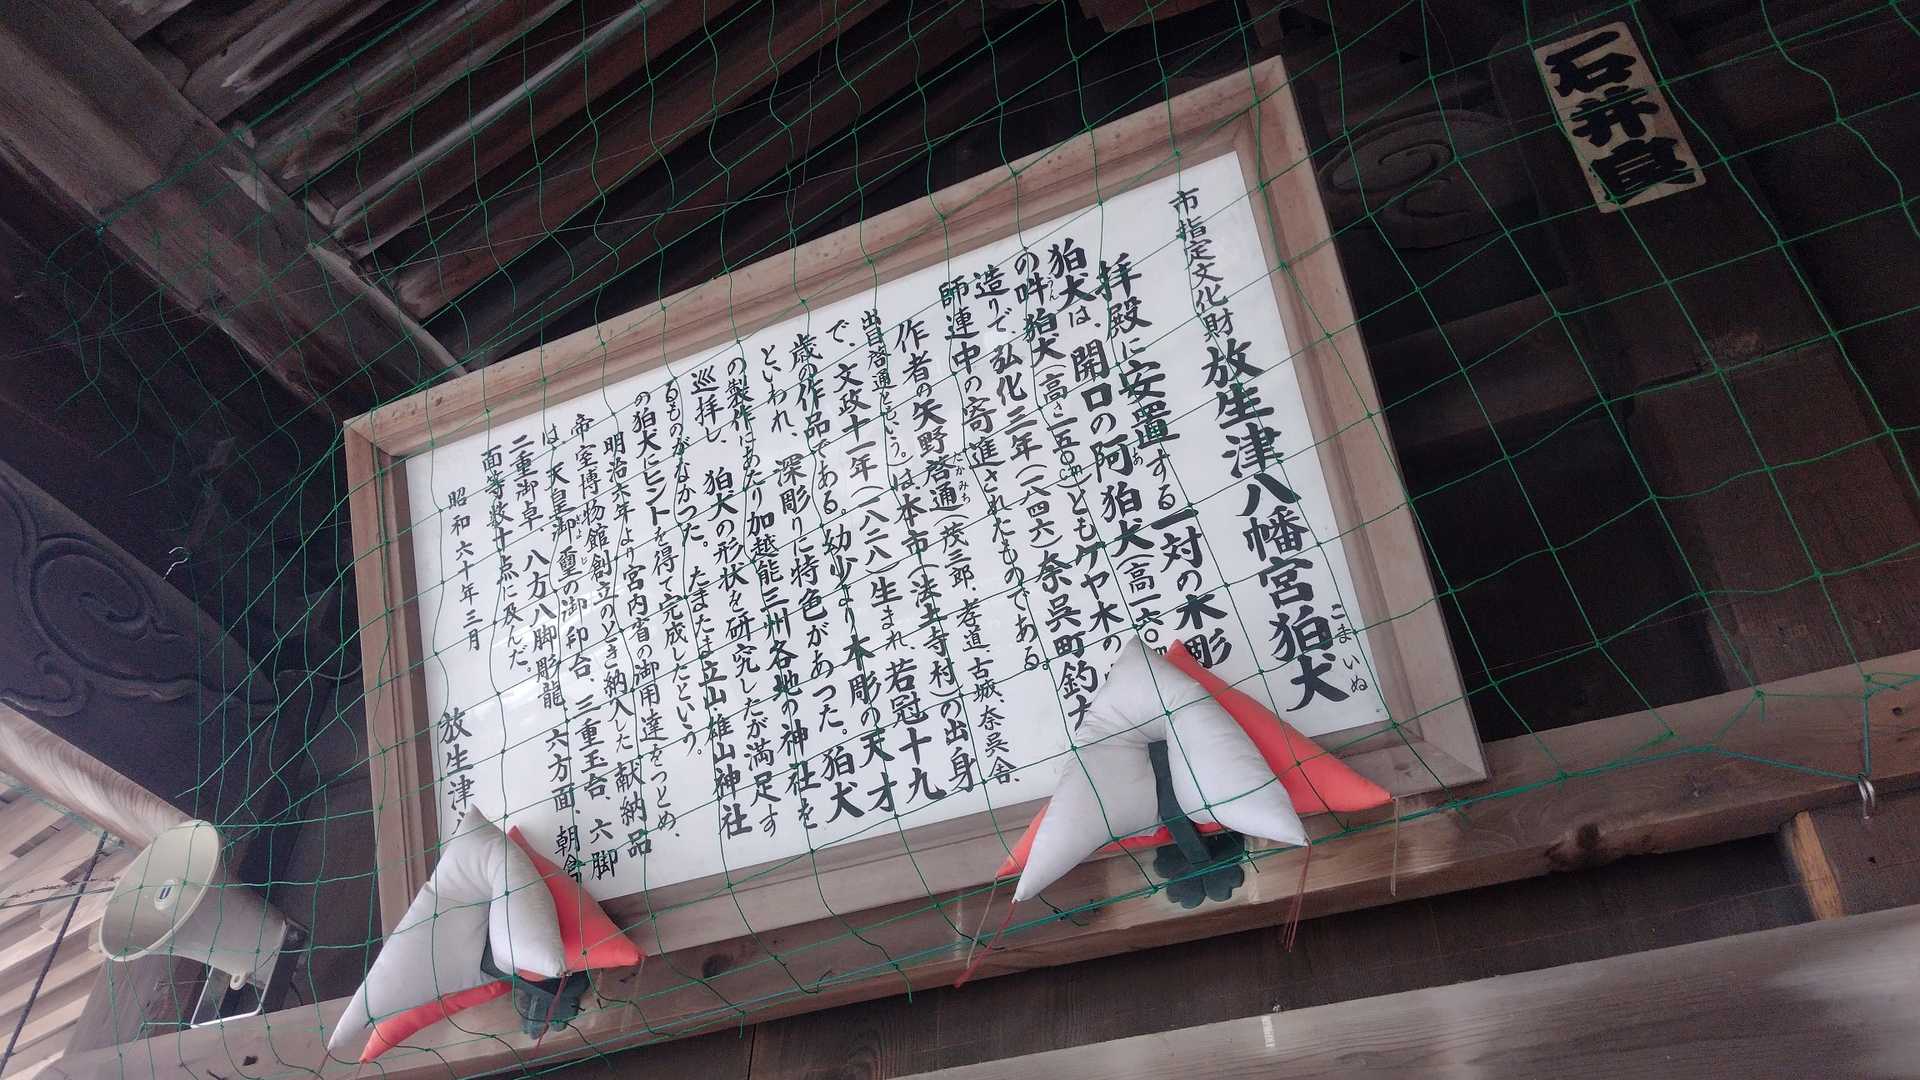 市指定文化財 放生津八幡宮狛犬
こまいぬ
拝殿に安置する一対の木彫
狛犬は、開口の阿狛犬(高一六〇㎝)
あ
の吽狛犬(高さ一五〇㎝)ともケヤ木の
うん
造りで、弘化三年(一八四六)奈呉町釣
師連中の寄進されたものである。
作者の矢野啓通(茂三郎、孝道、古城、奈呉舎、
たかみち
出目啓通ともいう。)は、本市(法土寺村)の出身
で、文政十一年(一八二八)生まれ、若冠十九
歳の作品である。幼少より木彫の天才
といわれ、深彫りに特色があった。狛犬
の製作にあたり加越能三州各地の神社を
巡拝し、狛犬の形状を研究したが満足す
るものがなかった。たまたま立山雄山神社
の狛犬にヒントを得て完成したという。
明治六年より宮内省の御用達をつとめ、
帝室博物館創立のとき納入した献納品
は、天皇御璽の御印台、三重玉台、六脚
ぎょじ
二重御卓、八方八脚彫龍、六方面、朝倉
面等数十点に及んだ。
昭和六十年三月
放生津
石井良